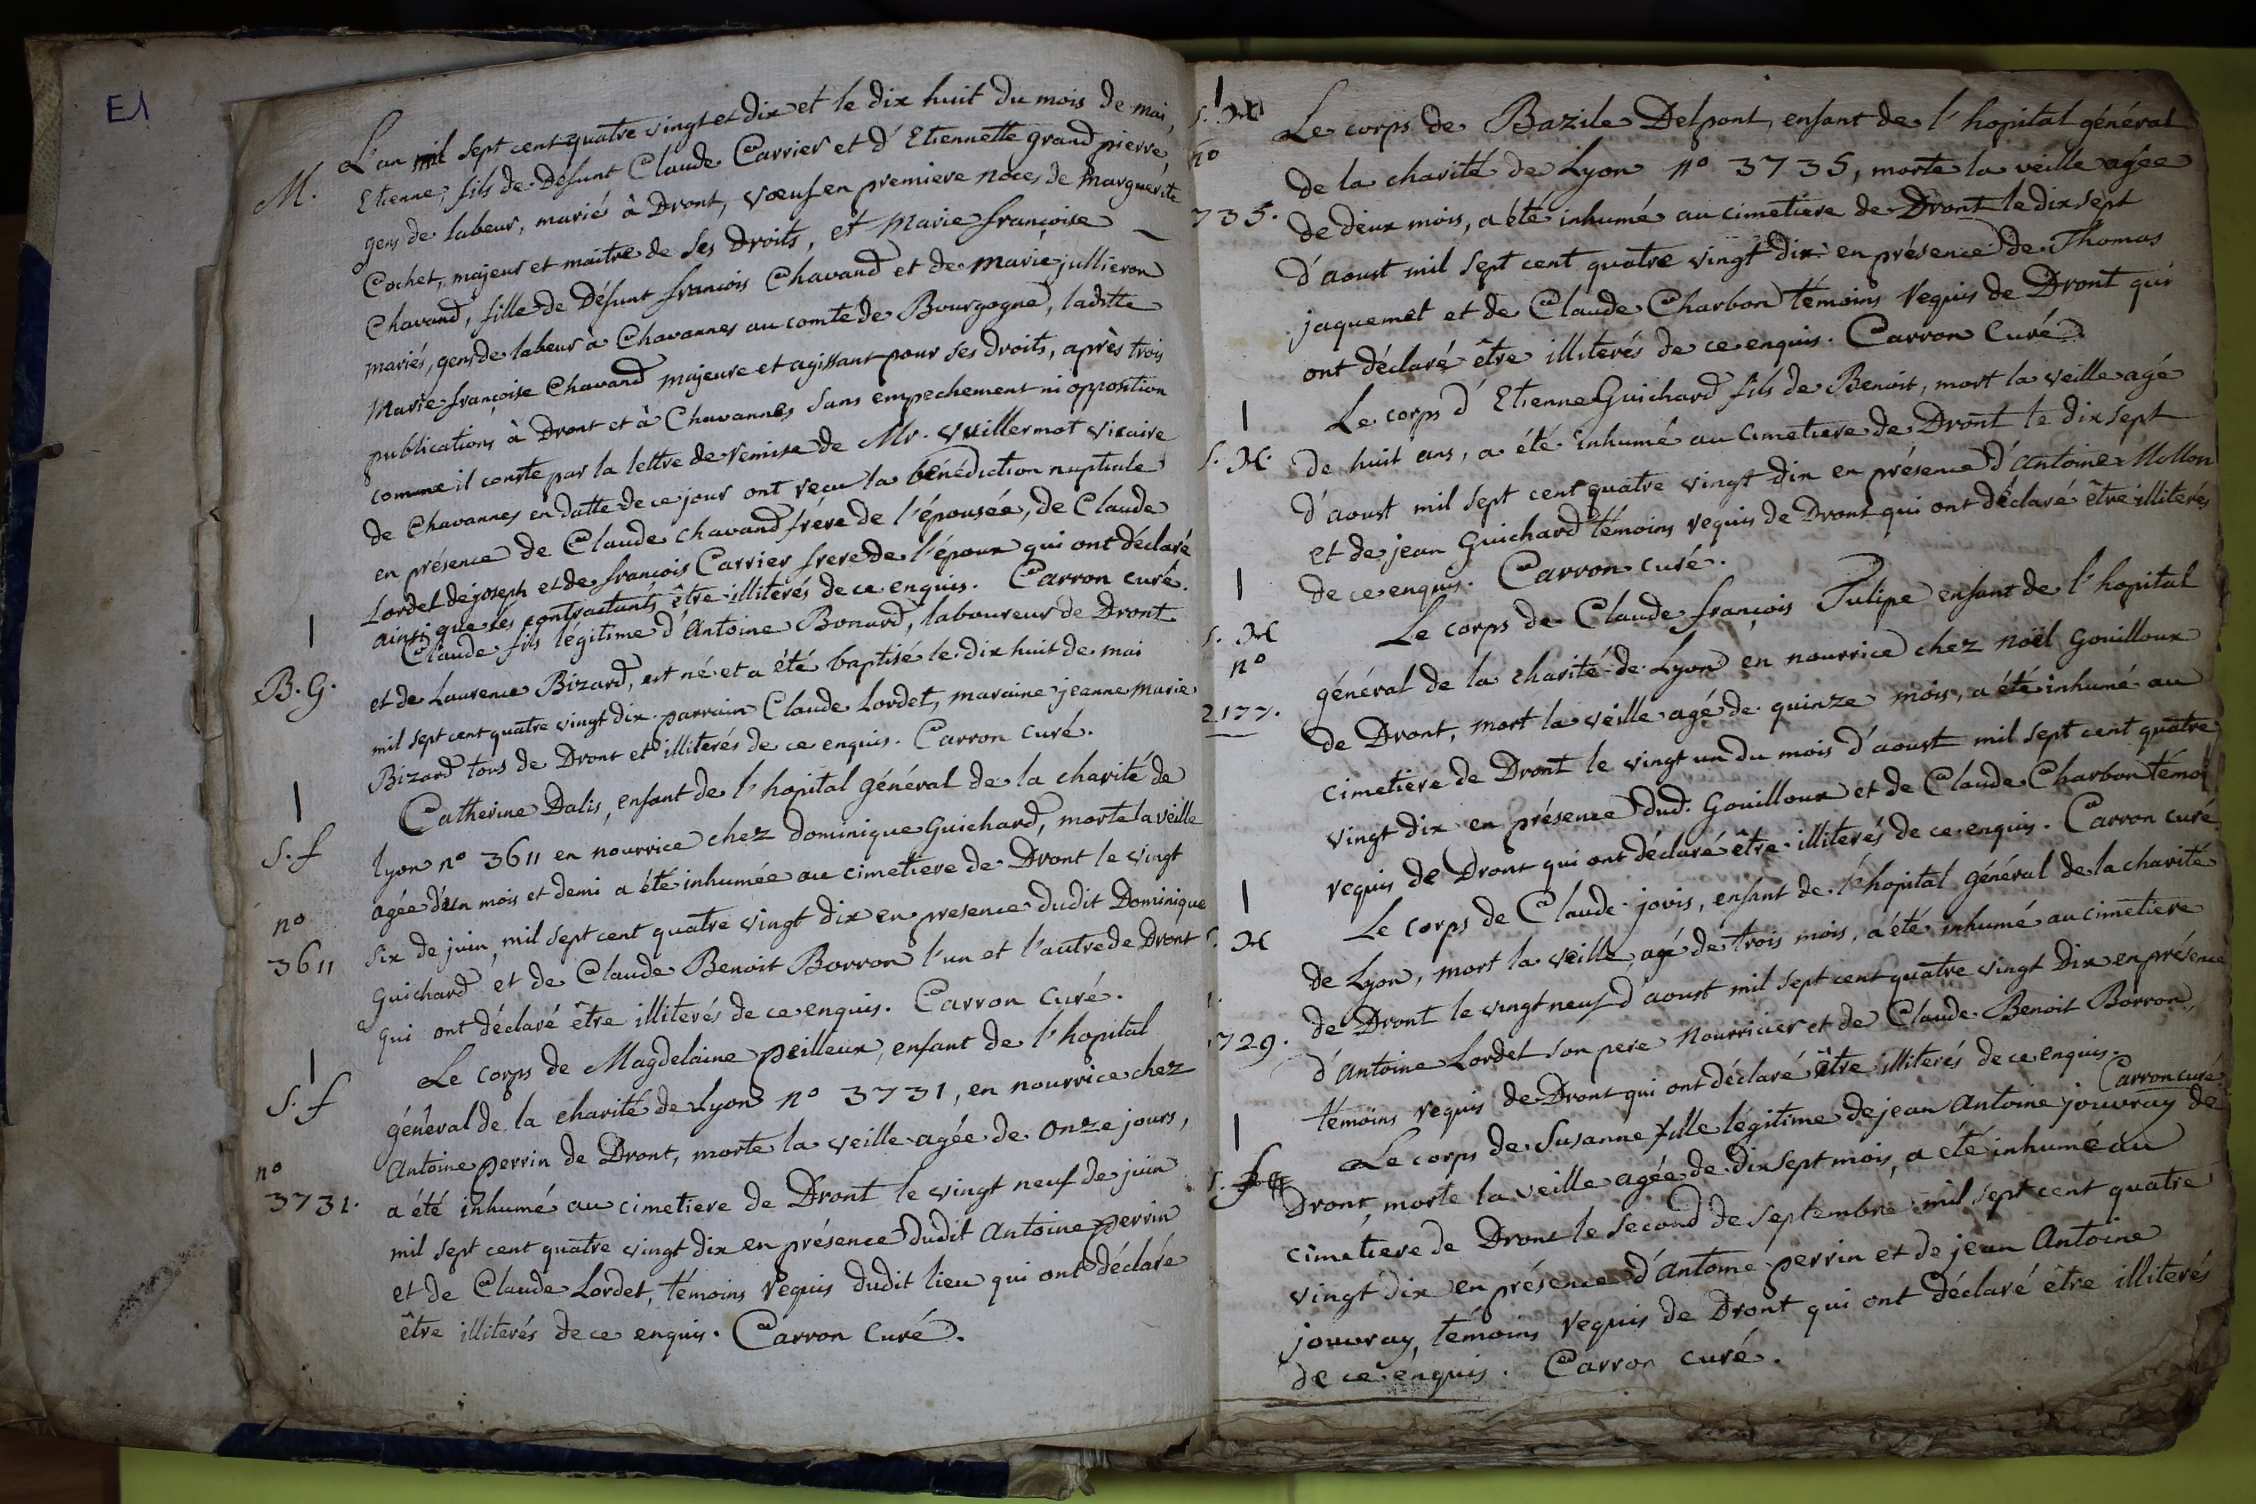 E1
M.
L'an mil sept cent quatre vingt et dix et le dix huit du mois de mai,
Etienne, fils de Defunt Claude Carrier et d'Etiennette grand pierre,
gens de labeur, marié à Dront, vœuf en premiere noces de Marguerite
Cochet, majeur et maitre de ses Droits, et Marie françoise
Chavand, fille de Défunt francois Chavand et de Marie jullieron
mariés, gens de labeur à Chavannes au comté de Bourgogne, laditte
Marie françoise Chavand majeure et agissant pour ses droits, après trois
publications à Dront et à Chavannes sans empechement ni opposition
comme il conste par la lettre de remise de Mr. Vuillermot Vicaire
de Chavannes en datte de ce jour ont reçu la bénédiction nuptiale
en présence de Claude Chavand frère de l'épousée, de Claude
Lordet de joseph et de françois Carrier frere de l'époux qui ont déclaré
ainsi que les contractants être illiterés de ce enquis. Carron curé.
B. G.
Claude fils légitime d'Antoine Bonard, laboureur de Dront
et de Laurence Bizard, est né et a été baptisé le dix huit de mai
mil sept cent quatre vingt dix parrain Claude Lordet, maraine jeanne Marie
Bizard tous de Dront et illiterés de ce enquis. Carron curé.
S. f
n° 3611
Catherine Dalis, enfant de l'hopital général de la charité de
Lyon n° 3611 en nourrice chez Dominique Guichard, morte la veille
agée d'un mois et demi a été inhumée au cimetiere de Dront le vingt
six de juin, mil sept cent quatre vingt dix en presence dudit Dominique
Guichard et de Claude Benoit Borron l'un et l'autre de Dront
qui ont déclaré être illiterés de ce enquis. Carron curé.
S. f
n° 3731.
Le corps de Magdelaine peilleux, enfant de l'hopital
général de la charité de Lyon n° 3731, en nourrice chez
Antoine perrin de Dront, morte la veille agée de onze jours,
a été inhumé au cimetiere de Dront le vingt neuf de juin
mil sept cent quatre vingt dix en présence dudit Antoine perrin
et de Claude Lordet, témoins requis dudit lieu qui ont déclaré
être illiterés de ce enquis. Carron curé.
S. M
n°
735.
Le corps de Bazile Delpont, enfant de l'hopital général
de la charité de Lyon n° 3735, morte la veille agée
de deux mois, a été inhumé au cimetiere de Dront le dix sept
d'aoust mil sept cent quatre vingt dix en présence de Thomas
jaquemet et de Claude Charbon témoins requis de Dront qui
ont déclaré être illiterés de ce enquis. Carron Curé.
S. M.
Le corps d'Etienne Guichard fils de Benoit, mort la veille agé
de huit ans, a été inhumé au cimetiere de Dront le dix sept
d'aoust mil sept cent quatre vingt dix en présence d'Antoine Mollon
et de jean Guichard témoins requis de Dront qui ont déclaré être illiterés
de ce enquis. Carron curé.
S. M
n°
2177.
Le corps de Claude françois Tulipe enfant de l'hopital
général de la charité de Lyon en nourrice chez Noël Gouilloux
de Dront, mort la veille agé de quinze mois, a été inhumé au
cimetiere de Dront le vingt un du mois d'aoust mil sept cent quatre
vingt dix en présence dud. Gouilloux et de Claude Charbon témoi
requis de Dront qui ont déclaré être illiterés de ce enquis. Carron curé
M
729.
Le corps de Claude jovis, enfant de l'hopital général de la charité
de Lyon, mort la veille, agé de trois mois, a été inhumé au cimetiere
de Dront le vingt neuf d'aoust mil sept cent quatre vingt Dix en présence
d'Antoine Lordet son pere Nourricier et de Claude Benoit Borron,
témoins requis de Dront qui ont déclaré être illiterés de ce enquis.
Carron curé.
Le corps de Susanne fille légitime de jean Antoine jouvray de
Dront, morte la veille agée de dix sept mois, a été inhumé au
cimetiere de Dront le second de septembre mil sept cent quatre
vingt dix en présence d'Antoine perrin et de jean Antoine
jouvray, témoins requis de Dront qui ont déclaré être illiterés
de ce enquis. Carron curé.